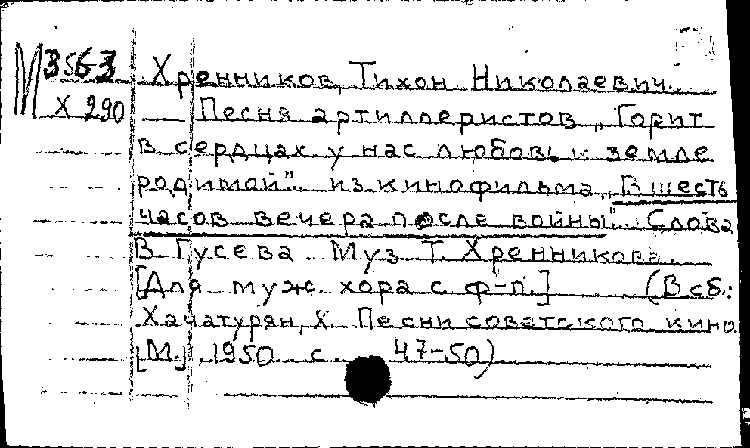 М 3563
Х 290
Хренников, Тихон Николаевич.
Песня артиллеристов „Горит
в сердцах у нас любовь к земле
родимой". из кинофильма „В шесть
часов вечера после войны" Слова
В. Гусева. Муз. Т. Хренникова.
[Для муж. хора с ф-п.] (В сб.:
Хачатурян, Х. Песни советского кино.
[М.], 1950 с. 47-50)